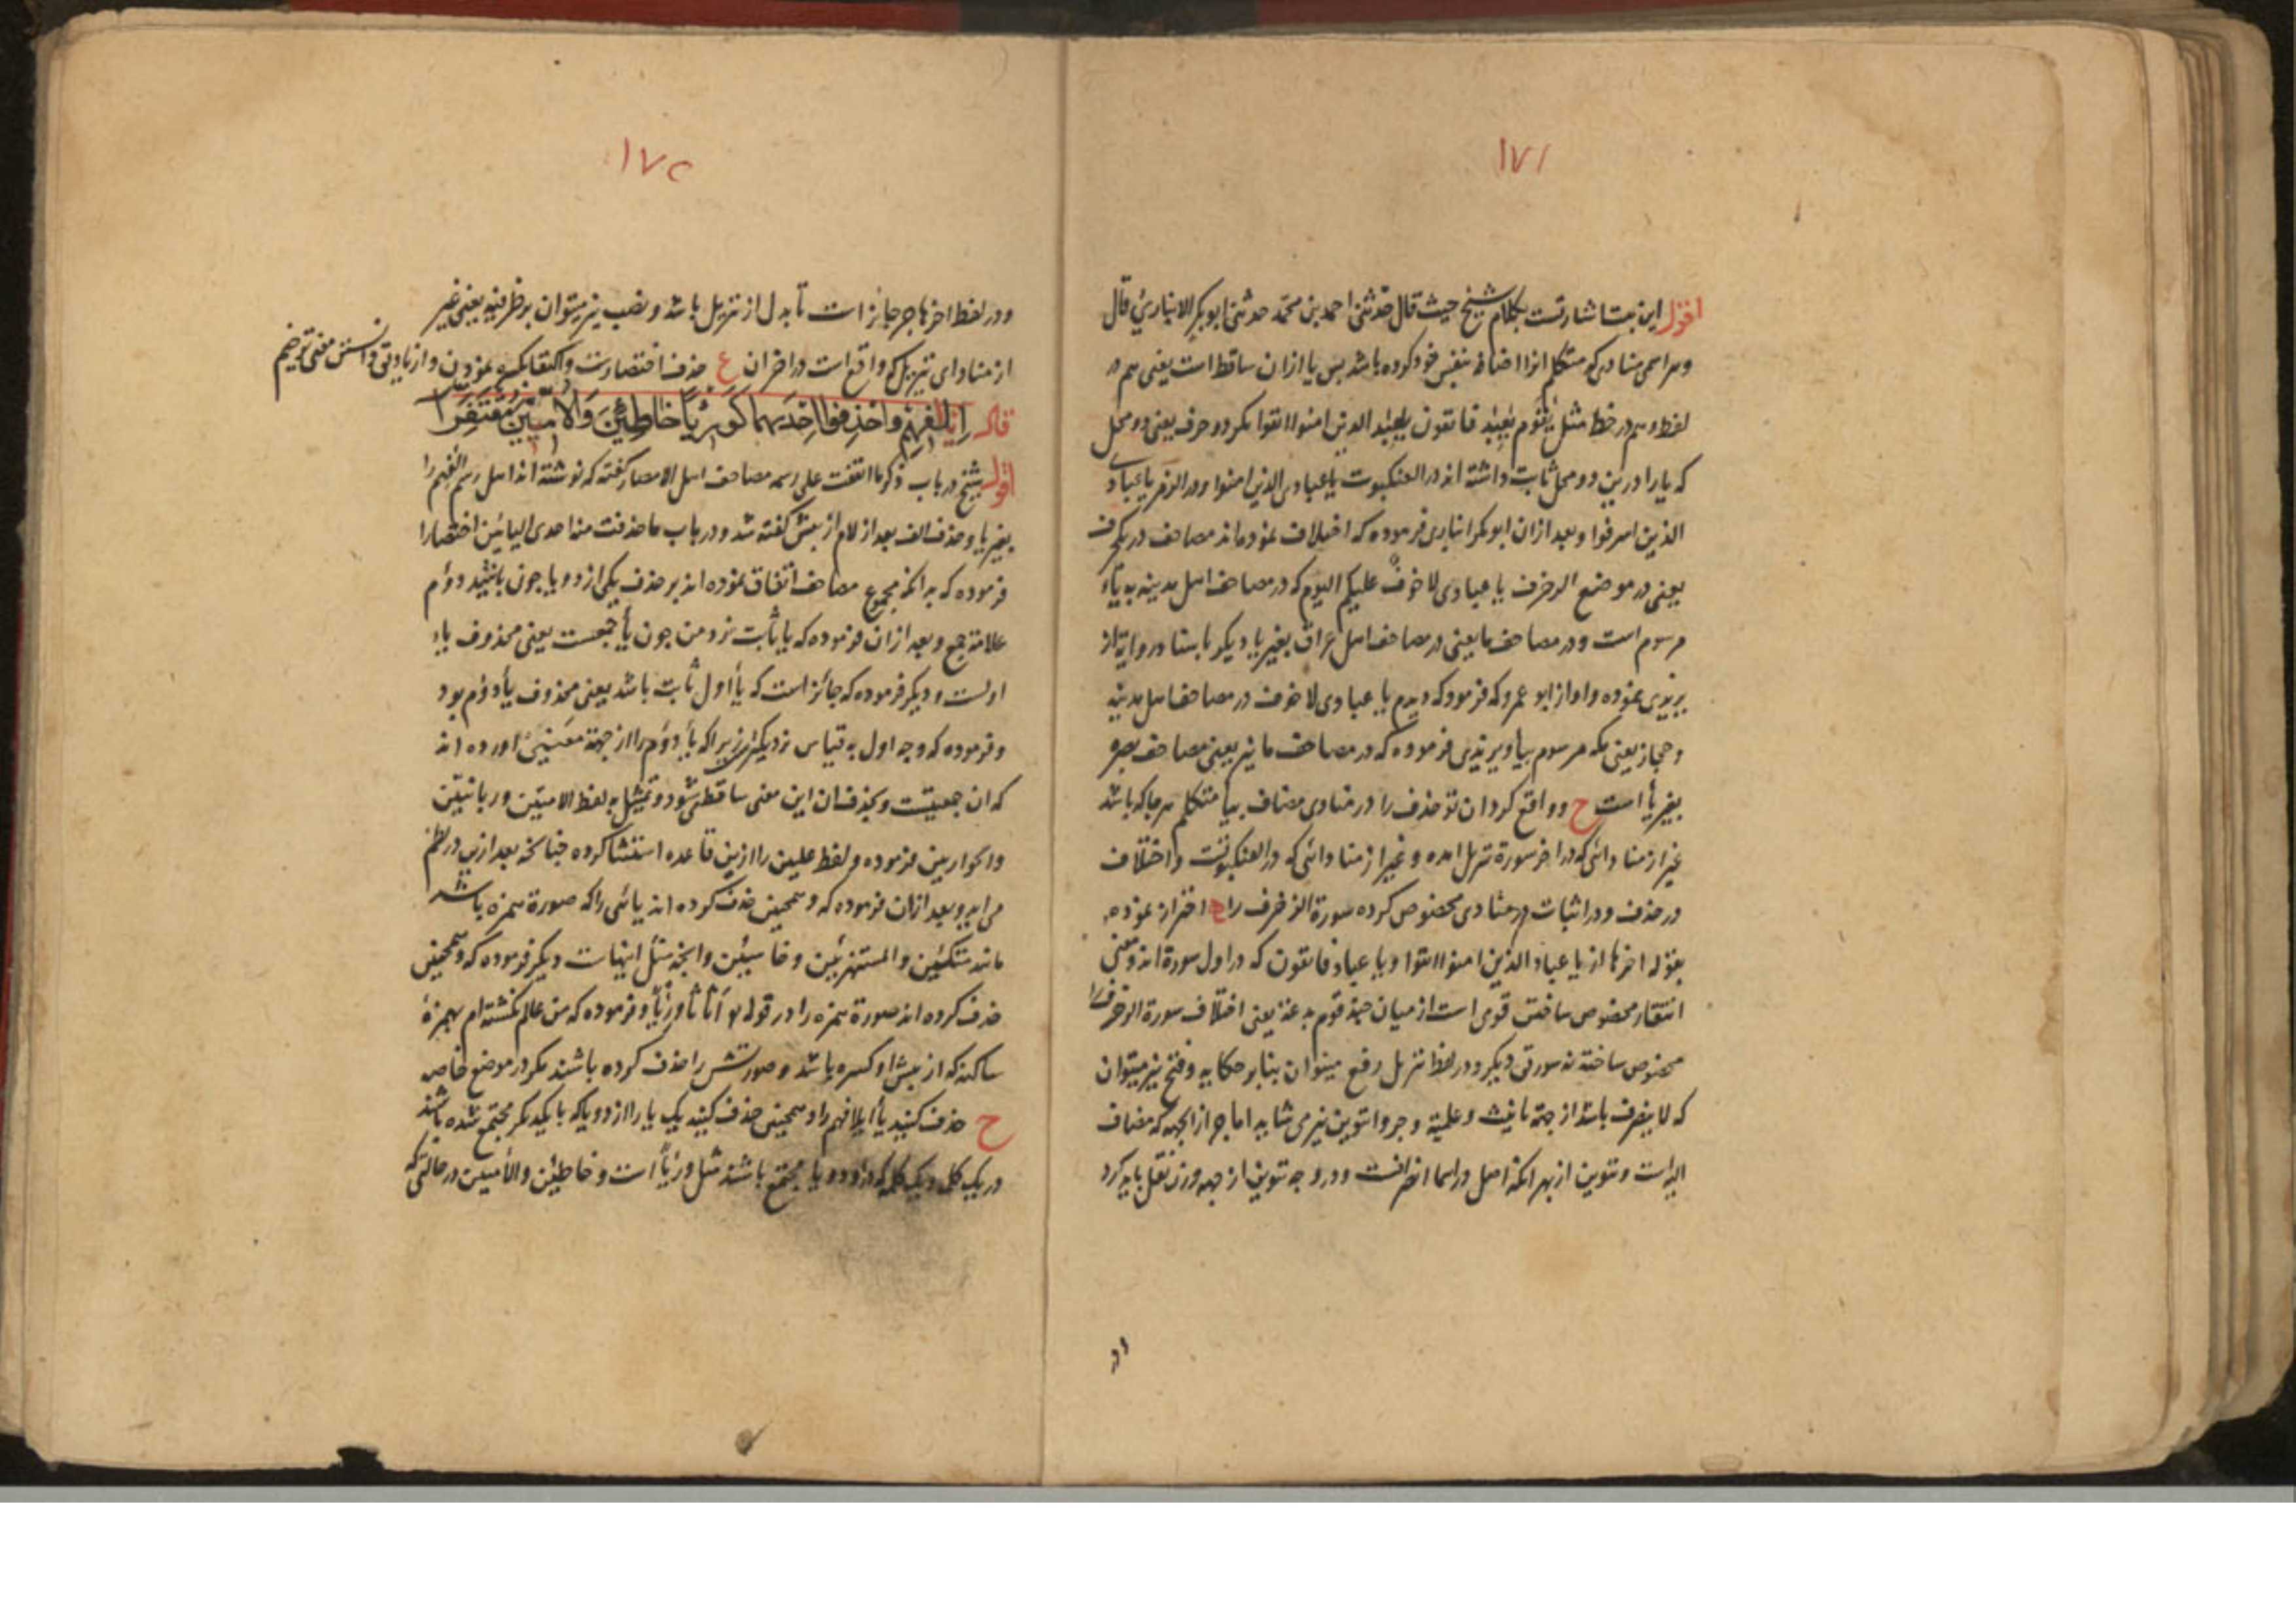 ١٧١
اقول این بیت اشارتست بکلام شیخ حیث قال حدثنی احمد بن محمد حدثنی ابوبکر الانباری قال
وهر اسمی منادی که متکلم انرا اضافه بنفس خود کرده باشد پس یا ازان ساقط است یعنی هم در
لفظ وهم در خط مثل یقوم یعباد فاتقون یعباد الذین امنوا اتقوا مکر دو حرف یعنی دو محل
که یا را درین دو محل ثابت داشته اند در العنکبوت یا عبادی الذین امنوا ودر الزمر یا عبادی
الذین اسرفوا وبعد ازان ابوبکر انباری فرموده که اختلاف نموده اند مصاحف در یکحرف
یعنی در موضع الزخرف یا عبادی لا خوف علیکم الیوم که در مصاحف اهل مدینه به یاء
مرسوم است ودر مصاحف ما یعنی در مصاحف اهل عراق بغیر یا دیکر باسناد روایة از
یزیدی نموده واو از ابو عمرو که فرمود که دیدم یا عبادی لا خوف در مصاحف اهل مدینه
وحجاز یعنی مکه مرسوم بیا ویزیدی فرموده که در مصاحف ما نیز یعنی مصاحف بصره
بغیر یا است ح وواقع کردان تو حذف را در منادی مضاف بیاء متکلم هرجا که باشد
غیر از منادائی که در اخر سورة تنزیل امده وغیر از منادائی که در العنکبوتست واختلاف
در حذف ودر اثبات در منادی مخصوص کرده سورة الزخرف را ع احتراز نموده
بقوله اخرها از یا عباد الذین امنوا اتقوا ویا عباد فاتقون که در اول سورة اند ومعنی
انتقار مخصوص ساختن قومی است از میان چند قوم به عند یعنی اختلاف سورة الزخرف را
مخصوص ساخته نه سورتی دیکر ودر لفظ تنزیل رفع میتوان بنابر حکایه وفتح نیز میتوان
که لا ینصرف باشد از جهة تانیث وعلمیة وجر وا تنوین نیز می شاید اما جر از انجهه که مضاف
الیه است وتنوین از بهر انکه اصل در اسما انصرافست ودر وجه تنوین از جهه وزن نقل باید کرد
١٧٢
ودر لفظ اخرها جر جائز است تا بدل از تنزیل باشد ونصب نیز میتوان بر ظرفیه یعنی غیر
از منادای تنزیل که واقع است در اخر ان ع حذف اختصارست واکتفا بکسره نمودن واز زیادتی
قال ایلفهم واحذفوا احدیهما کورئیا خاطئین والامیین مقتفرا
اقول شیخ در باب ذکر ما اتفقت علی رسمه مصاحف اهل الامصار کفته که نوشته اند اهل رسم الفهم را
بغیر یا وحذف الف بعد از لام از پیش کفته شد ودر باب ما حذفت منه احدی الیائین اختصارا
فرموده که بدانکه مجموع مصاحف اتفاق نموده اند بر حذف یکی از دو یا چون باشد دوم
علامة جمع وبعد ازان فرموده که یا ثابت نزد من چون یاء جمعست یعنی محذوف یاء
اولست ودیکر فرموده که جائز است که یاء اول ثابت باشد یعنی محذوف یاء دوم بود
وفرموده که وجه اول به قیاس نزدیکتر زیرا که یاء دوم را از جهة معنیی اورده اند
که ان جمعیتست وبحذف ان این معنی ساقط میشود وتمثیل به لفظ الامیین وربانیین
والحواریین فرموده ولفظ علیین را ازین قاعده استثنا کرده چنانچه بعد ازین در نظم
می اید وبعد ازان فرموده که وهمچنین حذف کرده اند یائی را که صورة همزه باشد
مانند متکئین والمستهزئین وخاسئین وانچه مثل اینهاست دیکر فرموده که وهمچنین
حذف کرده اند صورة همزه را در قوله اثاثا ورئیا وفرموده که من عالم نکشته ام بهمزۀ
ساکنه که از پیش او کسره باشد وصورتش را حذف کرده باشند مکر در موضع خاص
ح حذف کنید یاء ایلافهم را وهمچنین حذف کنید یک یا را از دو یا که با یکدیکر مجتمع شده باشند
در یک کلمه ویک کلمه که درو دو یا مجتمع باشند مثل ورئیا است وخاطئین والامیین در حالتی که